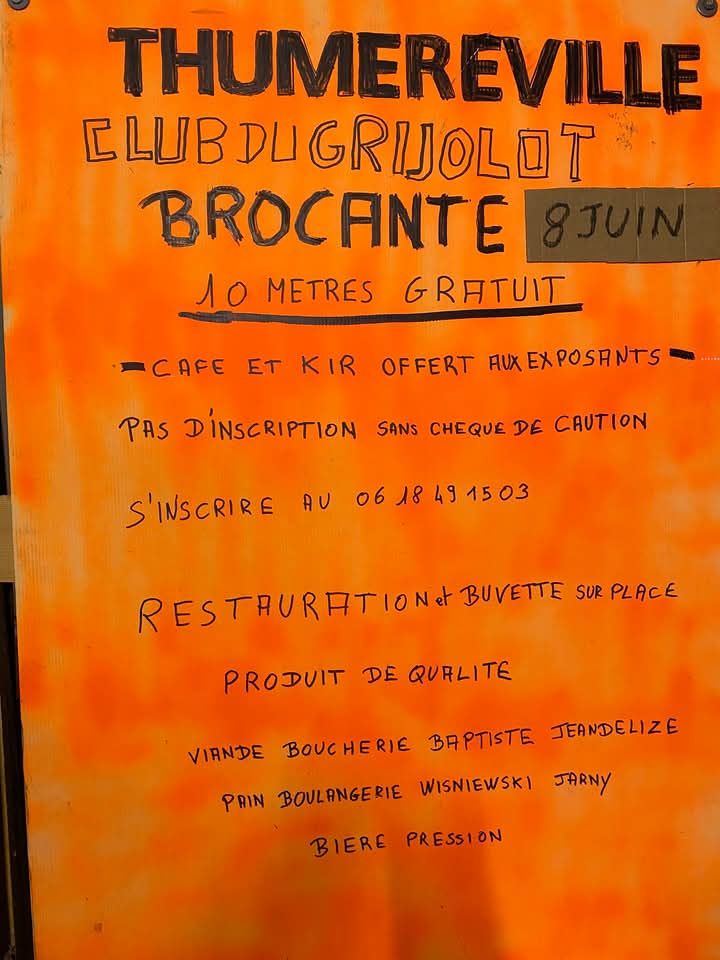 THUMEREVILLE
CLUB DU GRIJOLOT
BROCANTE 8 JUIN
10 METRES GRATUIT
- CAFE ET KIR OFFERT AUX EXPOSANTS -
PAS D'INSCRIPTION SANS CHEQUE DE CAUTION
S'INSCRIRE AU 06 18 49 15 03
RESTAURATION et BUVETTE SUR PLACE
PRODUIT DE QUALITE
VIANDE BOUCHERIE BAPTISTE JEANDELIZE
PAIN BOULANGERIE WISNIEWSKI JARNY
BIERE PRESSION